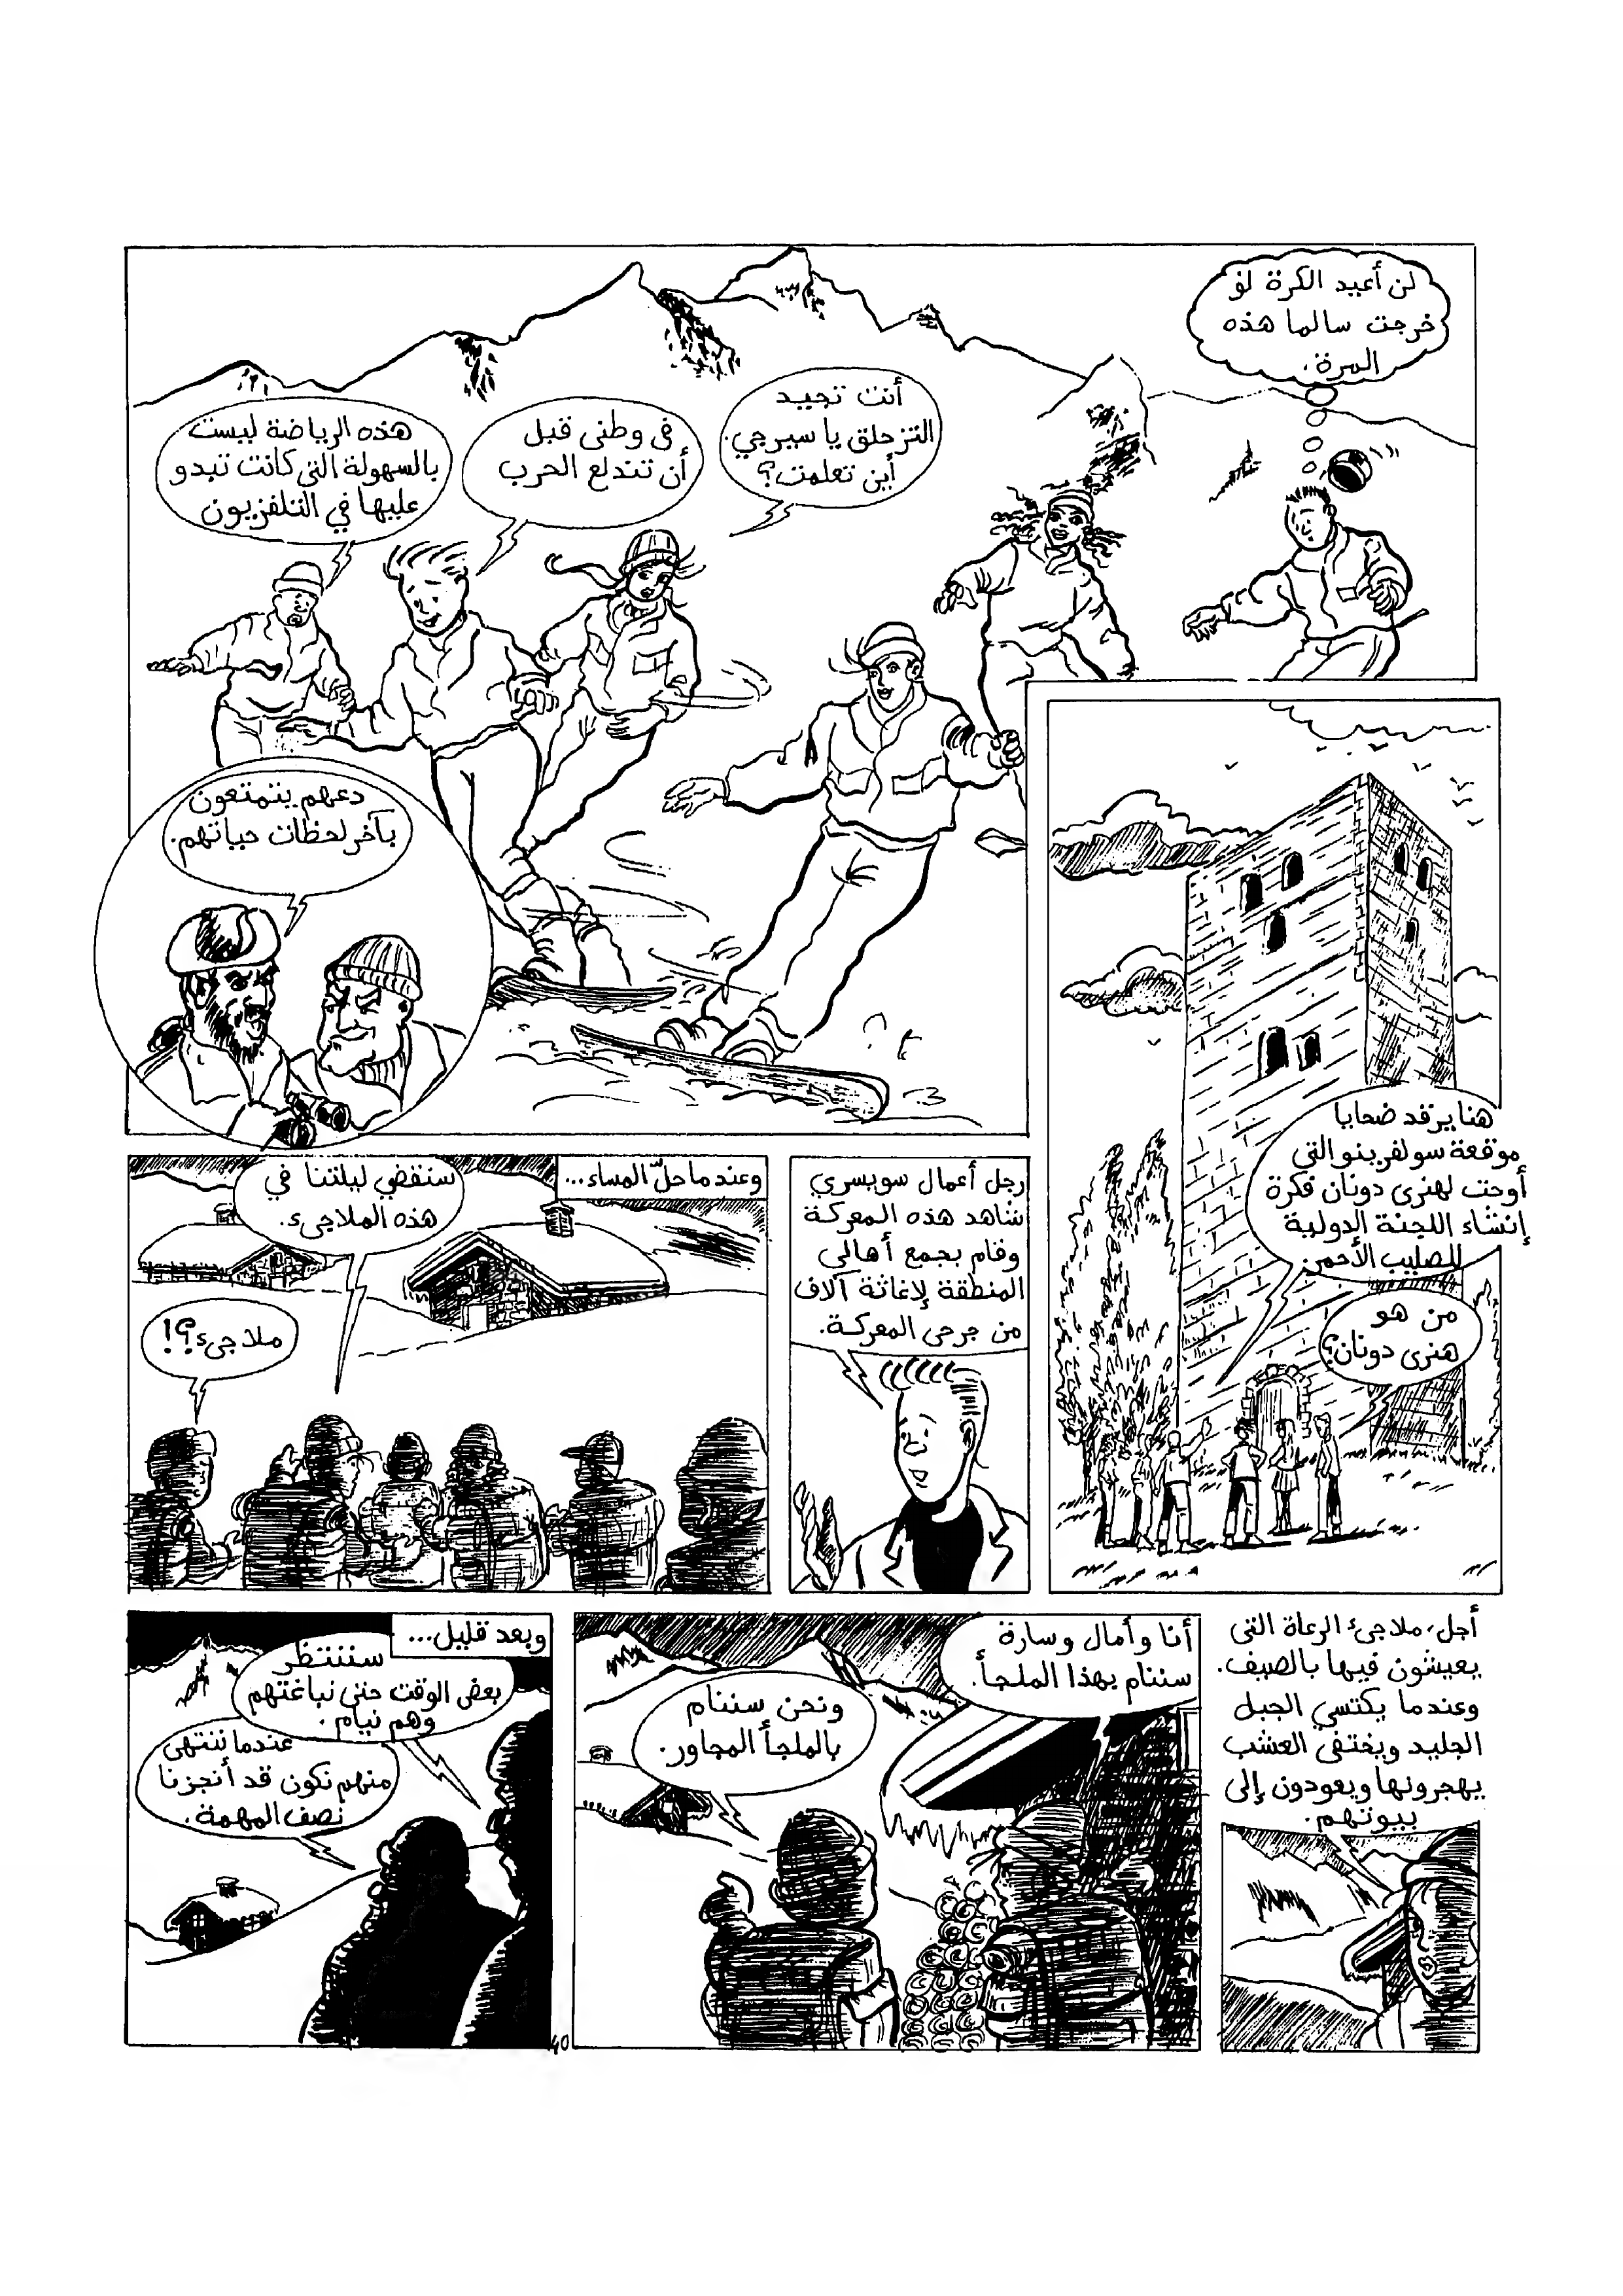 لن أعيد الكرة لو
خرجت سالما هذه
المرة.
أنت تجيد
التزحلق يا سيرجي.
أين تعلمت؟
فى وطنى قبل
أن تندلع الحرب
هذه الرياضة ليست
بالسهولة التي كانت تبدو
عليها في التلفزيون
دعهم يتمتعون
بآخر لحظات حياتهم.
هنا يرقد ضحايا
موقعة سولفرينو التي
أوحت لهنرى دونان فكرة
إنشاء اللجنة الدولية
للصليب الأحمر.
من هو
هنرى دونان؟
رجل أعمال سويسري
شاهد هذه المعركة
وقام بجمع أهالي
المنطقة لإغاثة آلاف
من جرحى المعركة.
وعندما حلّ المساء...
سنقضي ليلتنا في
هذه الملاجىء.
ملاجىء؟!
أجل، ملاجىء الرعاة التى
يعيشون فيها بالصيف.
وعندما يكتسي الجبل
الجليد ويختفى العشب
يهجرونها ويعودون إلى
بيوتهم.
أنا وأمال وسارة
سننام بهذا الملجأ.
ونحن سننام
بالملجأ المجاور.
وبعد قليل...
سننتظر
بعض الوقت حتى نباغتهم
وهم نيام.
عندما ننتهى
منهم نكون قد أنجزنا
نصف المهمة.
40